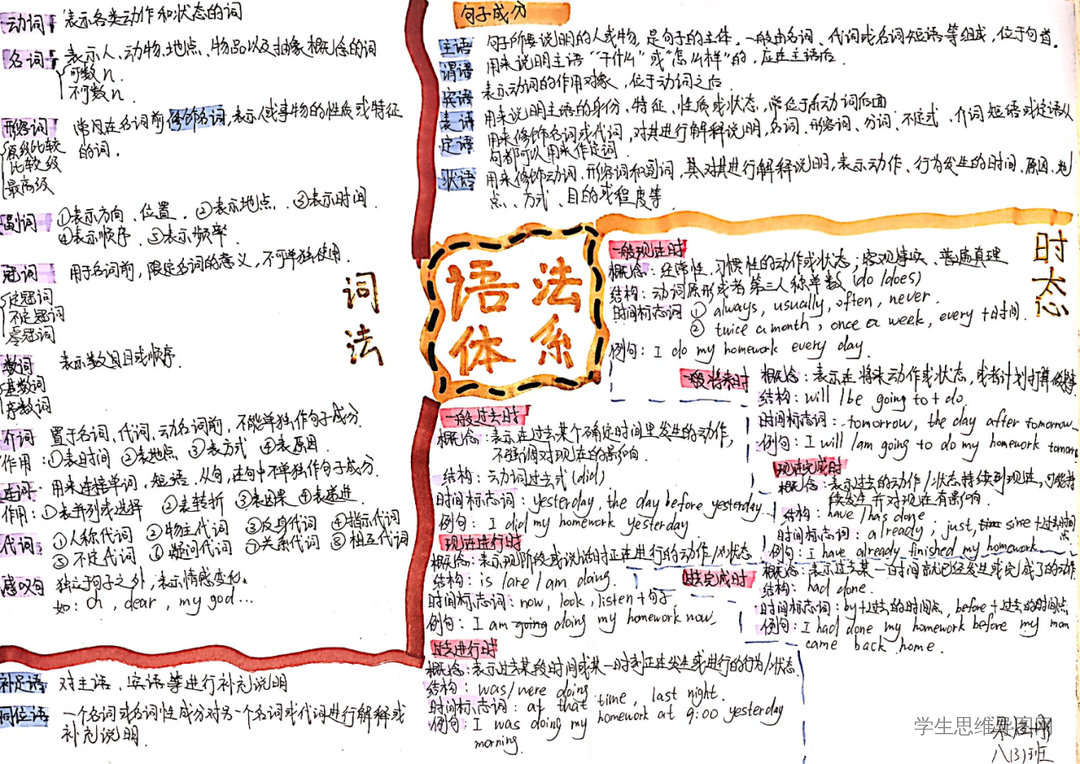 动词 表示各类动作和状态的词
名词 表示人、动物、地点、物品以及抽象概念的词
可数n.
不可数n.
形容词 常用在名词前,修饰名词,表示人或事物的性质或特征
的词.
原级比较
比较级
最高级
副词 ①表示方向、位置. ②表示地点. ③表示时间.
④表示顺序. ⑤表示频率.
冠词 用于名词前,限定名词的意义,不可单独使用.
定冠词
不定冠词
零冠词
数词 表示数目或顺序.
基数词
序数词
介词 置于名词、代词、动名词前,不能单独作句子成分
作用:①表时间 ②表地点 ③表方式 ④表原因
连词 用来连接单词、短语、从句,在句中不单独作句子成分.
作用:①表并列或选择 ②表转折 ③表因果 ④表递进
代词 ①人称代词 ②物主代词 ③反身代词 ④指示代词
⑤不定代词 ⑥疑问代词 ⑦关系代词 ⑧相互代词
感叹句 独立于句子之外,表示情感变化.
如:Oh, dear, my god...
词法
补足语 对主语、宾语等进行补充说明
同位语 一个名词或名词性成分对另一个名词或代词进行解释或
补充说明.
句子成分
主语 句子所要说明的人或物,是句子的主体.一般由名词、代词或名词短语等组成,位于句首.
谓语 用来说明主语“干什么”或“怎么样”的,应在主语后.
宾语 表示动词的作用对象,位于动词之后
表语 用来说明主语的身份、特征、性质或状态,常位于系动词后面
定语 用来修饰名词或代词,对其进行解释说明,名词、形容词、分词、不定式、介词短语或定语从
句都可以用来作定词
状语 用来修饰动词、形容词和副词,其对其进行解释说明,表示动作、行为发生的时间、原因、地
点、方式、目的或程度等
语法
体系
时态
一般现在时
概念:经常性、习惯性的动作或状态;客观事实、普遍真理
结构:动词原形或者第三人称单数(do/does)
时间标志词 ① always, usually, often, never.
② twice a month, once a week, every+时间.
例句:I do my homework every day.
一般将来时
概念:表示在将来动作或状态,或者计划打算做某事
结构:will/be going to+do.
时间标志词:tomorrow, the day after tomorrow
例句:I will/am going to do my homework tomorrow
一般过去时
概念:表示在过去某个确定时间里发生的动作,
不强调对现在的影响.
结构:动词过去式(did)
时间标志词:yesterday, the day before yesterday
例句:I did my homework yesterday
现在完成时
概念:表示过去的动作/状态持续到现在,可能持
续发生并对现在有影响
结构:have/has done
时间标志词:already, just, since+过去时间点
例句:I have already finished my homework
现在进行时
概念:表示现阶段或说话时正在进行的动作/状态
结构:is/are/am doing.
时间标志词:now, look, listen+句子
例句:I am going doing my homework now.
过去完成时
概念:表示过去某一时间前就已经发生或完成了的动作
结构:had done.
时间标志词:by+过去的时间点, before+过去的时间点
例句:I had done my homework before my mom
came back home.
过去进行时
概念:表示过去某段时间或某一时刻正在发生或进行的行为/状态
结构:was/were doing
时间标志词:at that time, last night.
例句:I was doing my homework at 9:00 yesterday
morning.
学生思维导图网
八(3)班